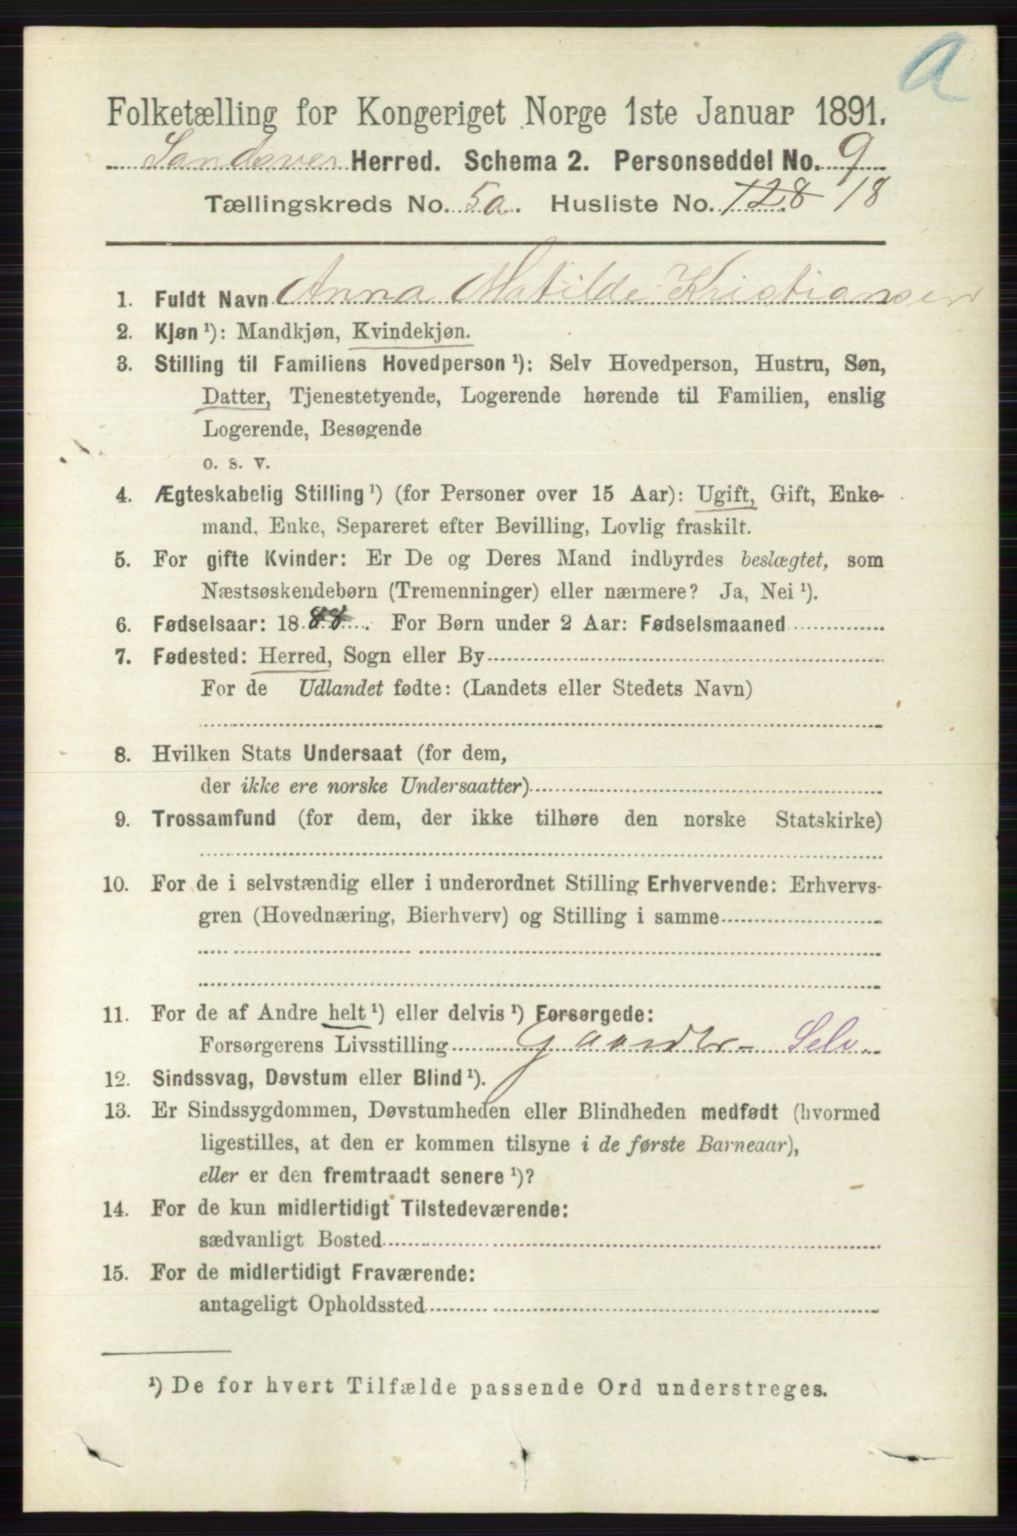 A
Folketælling for Kongeriget Norge 1ste Januar 1891.
Sandsver Herred. Schema 2. Personseddel No. 9
Tællingskreds No. 5a. Husliste No. 128 18
1. Fuldt Navn Anna Matilde Kristiansen
2. Kjøn ¹): Mandkjøn, Kvindekjøn.
3. Stilling til Familiens Hovedperson ¹): Selv Hovedperson, Hustru, Søn,
Datter, Tjenestetyende, Logerende hørende til Familien, enslig
Logerende, Besøgende
o. s. v.
4. Ægteskabelig Stilling ¹) (for Personer over 15 Aar): Ugift, Gift, Enke-
mand, Enke, Separeret efter Bevilling, Lovlig fraskilt.
5. For gifte Kvinder: Er De og Deres Mand indbyrdes beslægtet, som
Næstsøskendebørn (Tremenninger) eller nærmere? Ja, Nei ¹).
6. Fødselsaar: 1888. For Børn under 2 Aar: Fødselsmaaned
7. Fødested: Herred, Sogn eller By
For de Udlandet fødte: (Landets eller Stedets Navn)
8. Hvilken Stats Undersaat (for dem,
der ikke ere norske Undersaatter)
9. Trossamfund (for dem, der ikke tilhøre den norske Statskirke)
10. For de i selvstændig eller i underordnet Stilling Erhvervende: Erhvervs-
gren (Hovednæring, Bierhverv) og Stilling i samme
11. For de af Andre helt ¹) eller delvis ¹) Forsørgede:
Forsørgerens Livsstilling Gaardbr. Selv.
12. Sindssvag, Døvstum eller Blind ¹).
13. Er Sindssygdommen, Døvstumheden eller Blindheden medfødt (hvormed
ligestilles, at den er kommen tilsyne i de første Barneaar),
eller er den fremtraadt senere ¹)?
14. For de kun midlertidigt Tilstedeværende:
sædvanligt Bosted
15. For de midlertidigt Fraværende:
antageligt Opholdssted
¹) De for hvert Tilfælde passende Ord understreges.